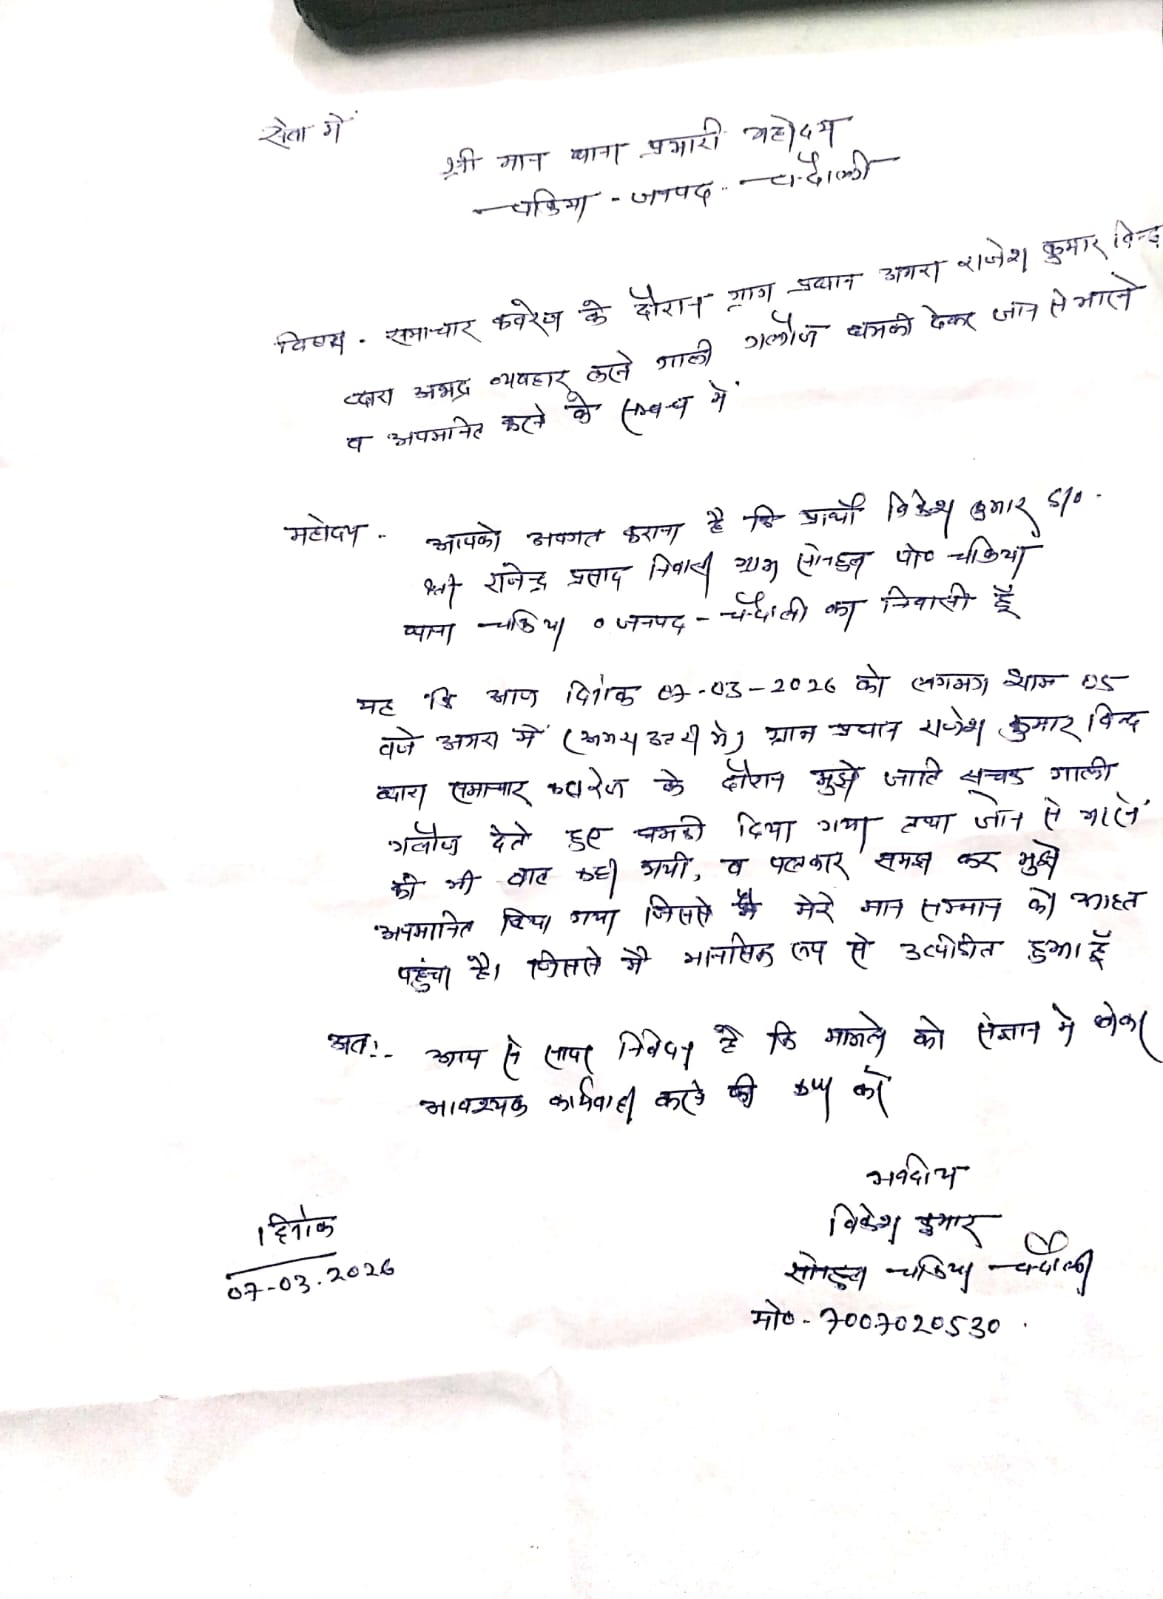 सेवा में
श्री मान थाना प्रभारी महोदय
चकिया - जनपद - चन्दौली
विषय - समाचार कवरेज के दौरान ग्राम प्रधान अमरा राजेश कुमार बिन्द
द्वारा अभद्र व्यवहार करने गाली गलौज धमकी देकर जान से मारने
व अपमानित करने के सम्बन्ध में
महोदय - आपको अवगत कराना है कि प्रार्थी विकेश कुमार S/o
श्री राजेन्द्र प्रसाद निवासी ग्राम सोनहुल पो० चकिया
थाना चकिया ० जनपद - चन्दौली का निवासी हूँ
यह कि आज दिनांक 07-03-2026 को लगभग शाम 05
बजे अमरा में ( में) ग्राम प्रधान राजेश कुमार बिन्द
द्वारा समाचार कवरेज के दौरान मुझे जाति सूचक गाली
गलौज देते हुए धमकी दिया गया तथा जान से मारने
की भी बात कही गयी, व पत्रकार समझ कर मुझे
अपमानित किया गया जिससे मेरे मान सम्मान को आहत
पहुंचा है। जिससे मैं मानसिक रूप से उत्पीड़ित हुआ हूँ
अतः- आप से सादर निवेदन है कि मामले को संज्ञान में लेकर
आवश्यक कार्यवाही करने की कृपा करें
भवदीय
विकेश कुमार
सोनहुल चकिया चन्दौली
मो० - 7007020530
दिनांक
07-03.2026